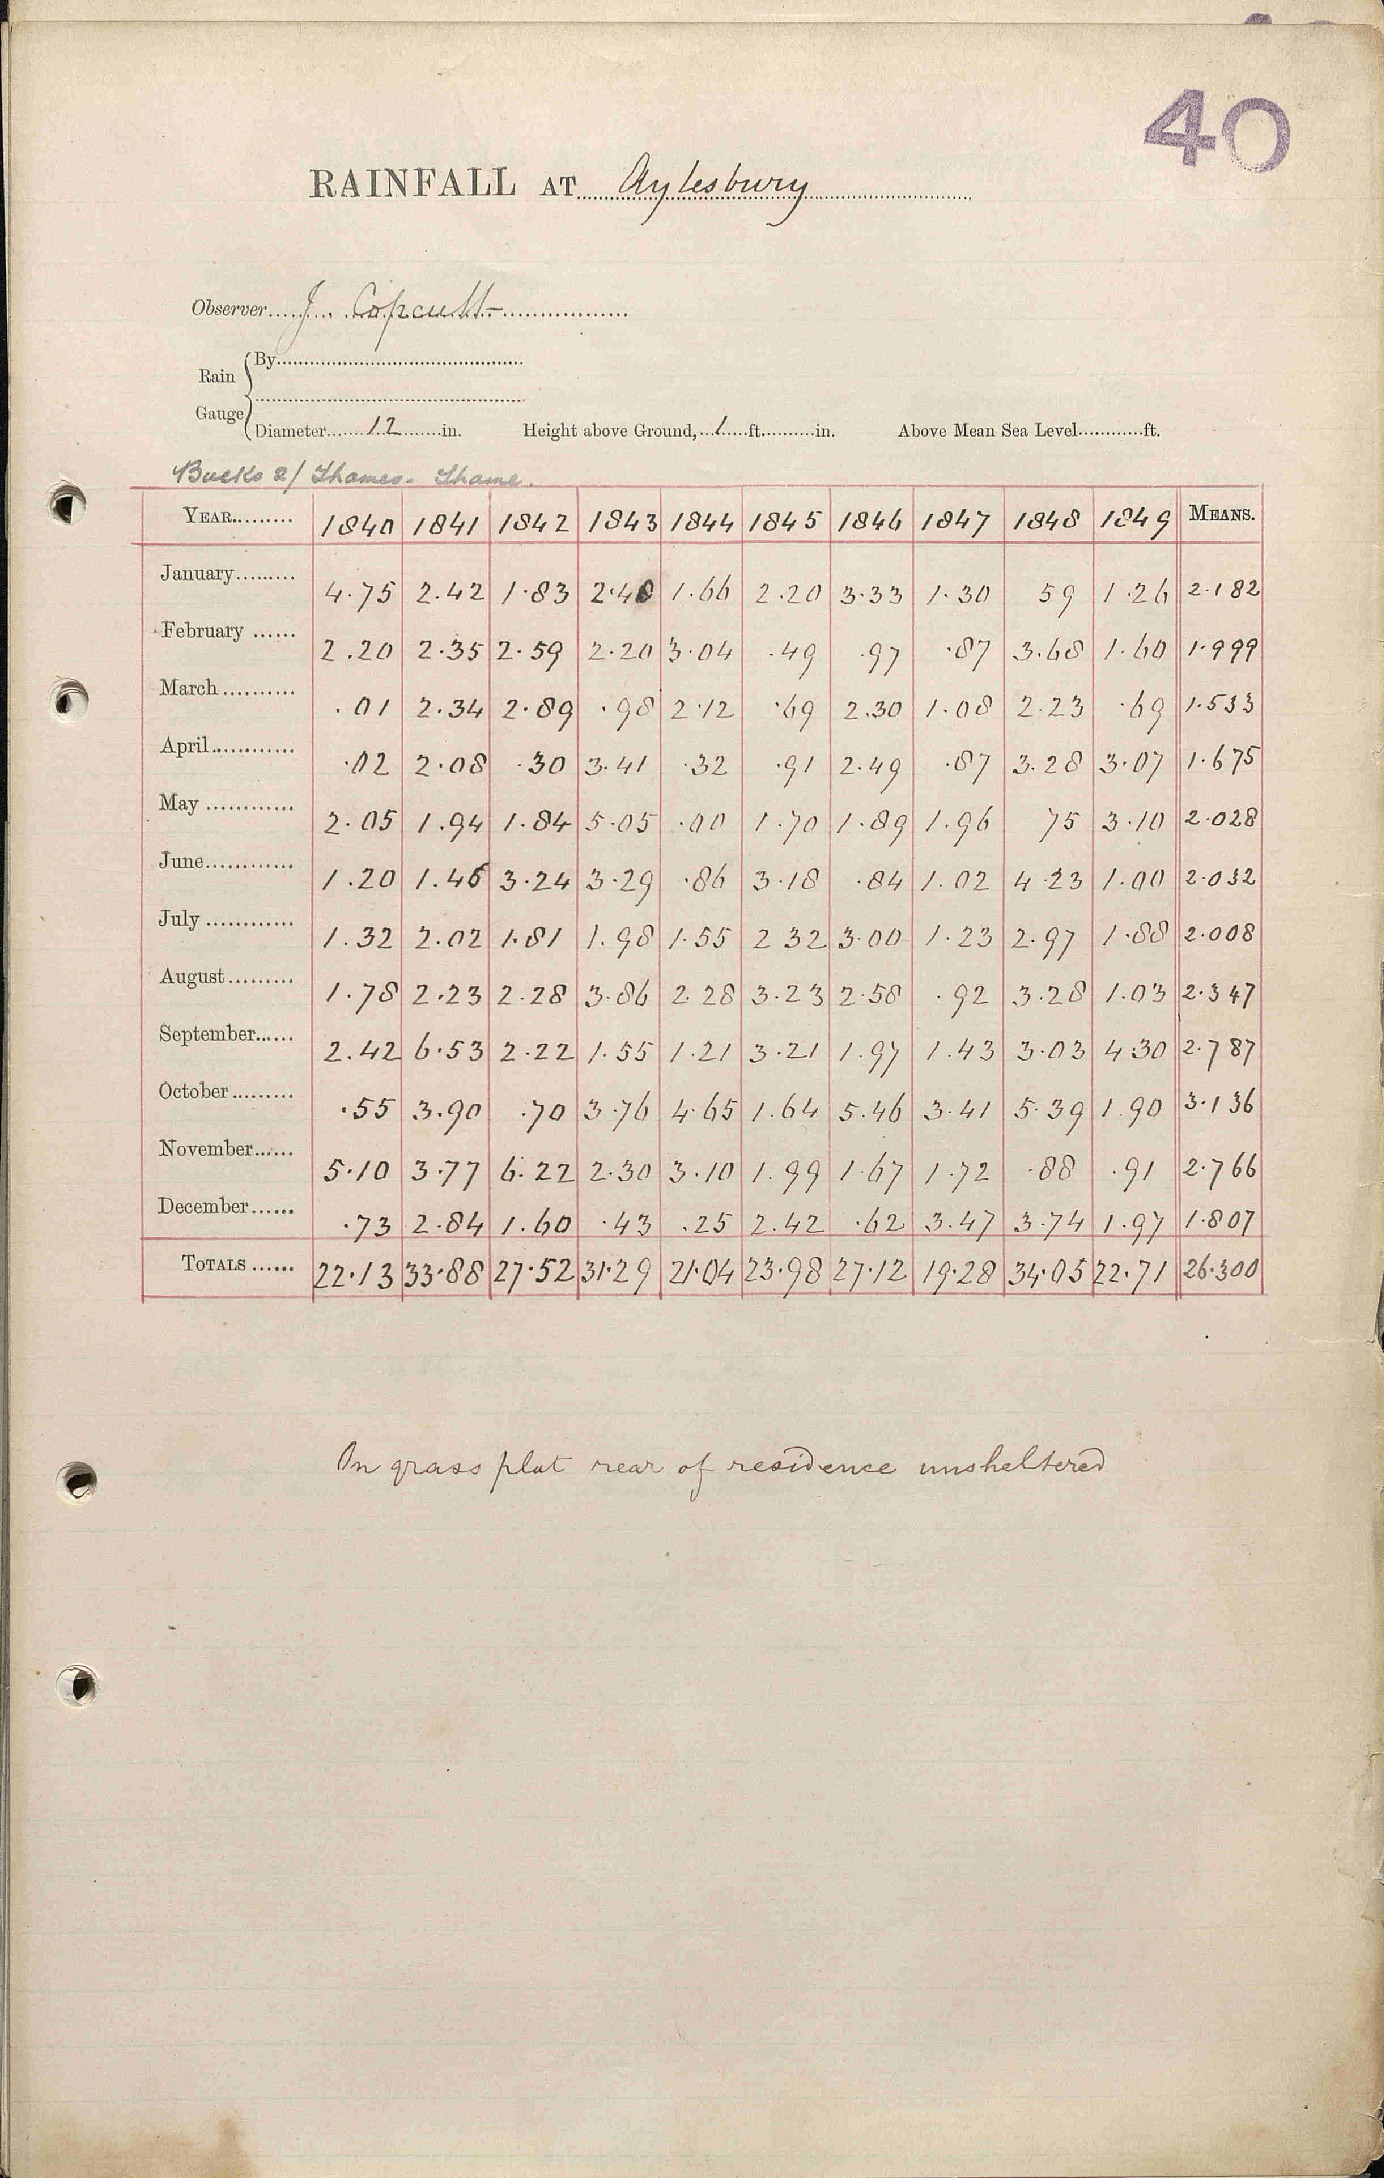 40
RAINFALL AT Aylesbury
Observer J. Copcutt
Rain Gauge
By
Diameter 12 in. Height above Ground, 1 ft. in. Above Mean Sea Level ft.
Bucks 2/ Thames - Thame.
YEAR 1840 1841 1842 1843 1844 1845 1846 1847 1848 1849 MEANS.
January 4.75 2.42 1.83 2.48 1.66 2.20 3.33 1.30 59 1.26 2.182
February 2.20 2.35 2.59 2.20 3.04 .49 .97 .87 3.68 1.60 1.999
March .01 2.34 2.89 .98 2.12 .69 2.30 1.08 2.23 .69 1.533
April .02 2.08 .30 3.41 .32 .91 2.49 .87 3.28 3.07 1.675
May 2.05 1.94 1.84 5.05 .00 1.70 1.89 1.96 75 3.10 2.028
June 1.20 1.46 3.24 3.29 .86 3.18 .84 1.02 4.23 1.00 2.032
July 1.32 2.02 1.81 1.98 1.55 2 32 3.00 1.23 2.97 1.88 2.008
August 1.78 2.23 2.28 3.86 2.28 3.23 2.58 .92 3.28 1.03 2.347
September 2.42 6.53 2.22 1.55 1.21 3.21 1.97 1.43 3.03 4.30 2.787
October .55 3.90 .70 3.76 4.65 1.64 5.46 3.41 5.39 1.90 3.136
November 5.10 3.77 6.22 2.30 3.10 1.99 1.67 1.72 .88 .91 2.766
December .73 2.84 1.60 .43 .25 2.42 .62 3.47 3.74 1.97 1.807
TOTALS 22.13 33.88 27.52 31.29 21.04 23.98 27.12 19.28 34.05 22.71 26.300
On grass plot rear of residence unsheltered